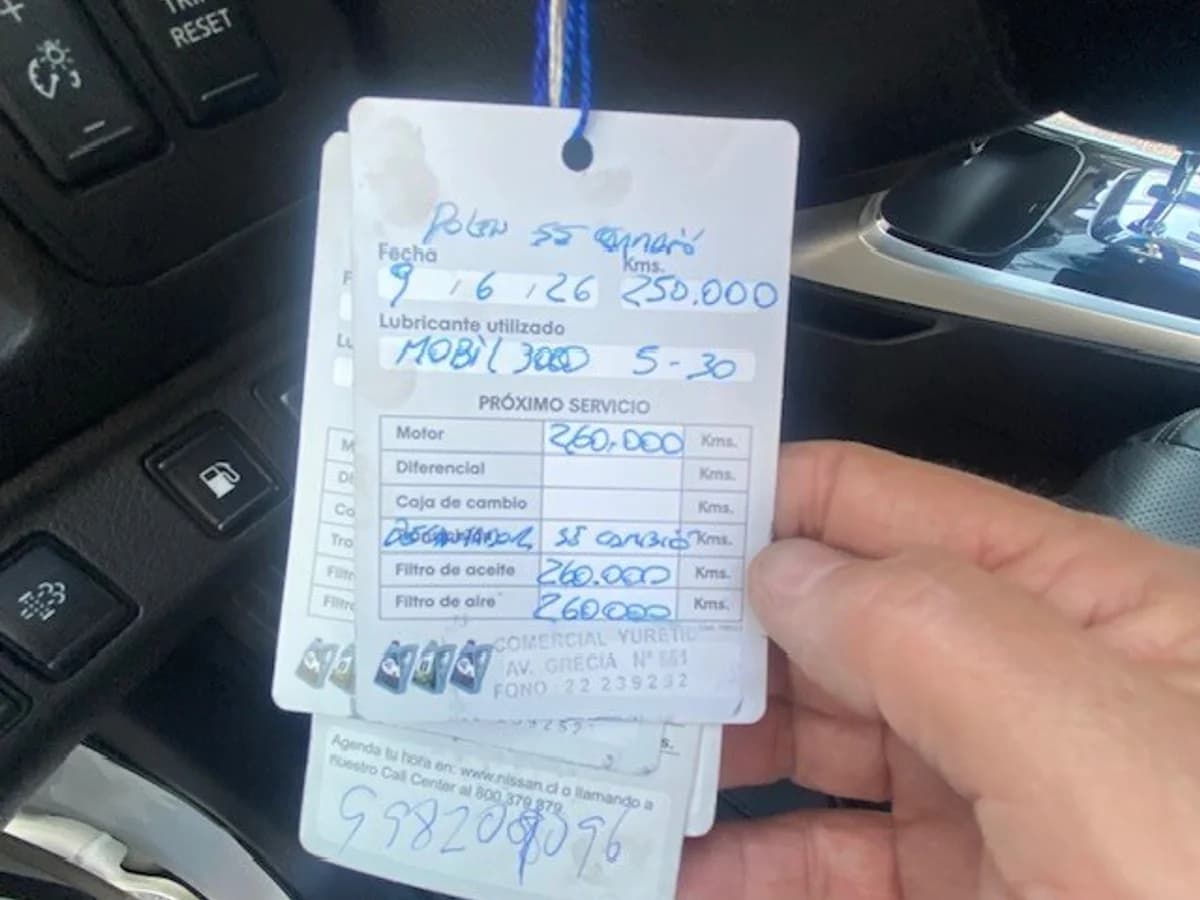 +
RESET
Polen SE Cambió
Fecha Kms.
9 / 6 / 26 250.000
Lubricante utilizado
MOBiL 3000 5-30
PRÓXIMO SERVICIO
Motor 260.000 Kms.
Diferencial Kms.
Caja de cambio Kms.
SE CAMBIÓ Kms.
Filtro de aceite 260.000 Kms.
Filtro de aire 260000 Kms.
COMERCIAL
AV. GRECIA Nº
FONO: 22 239292
Agenda tu hora en: www.nissan.cl o llamando a
nuestro Call Center al 800 379 879